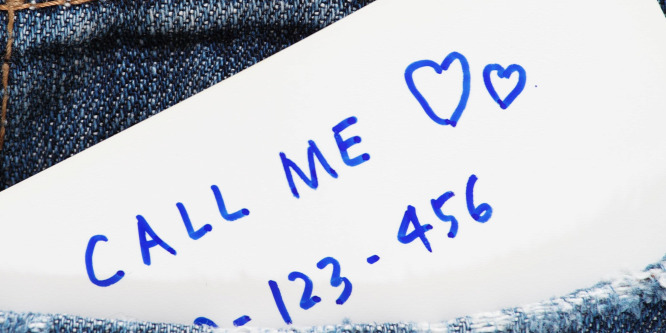 CALL ME ♡♡
-123-456